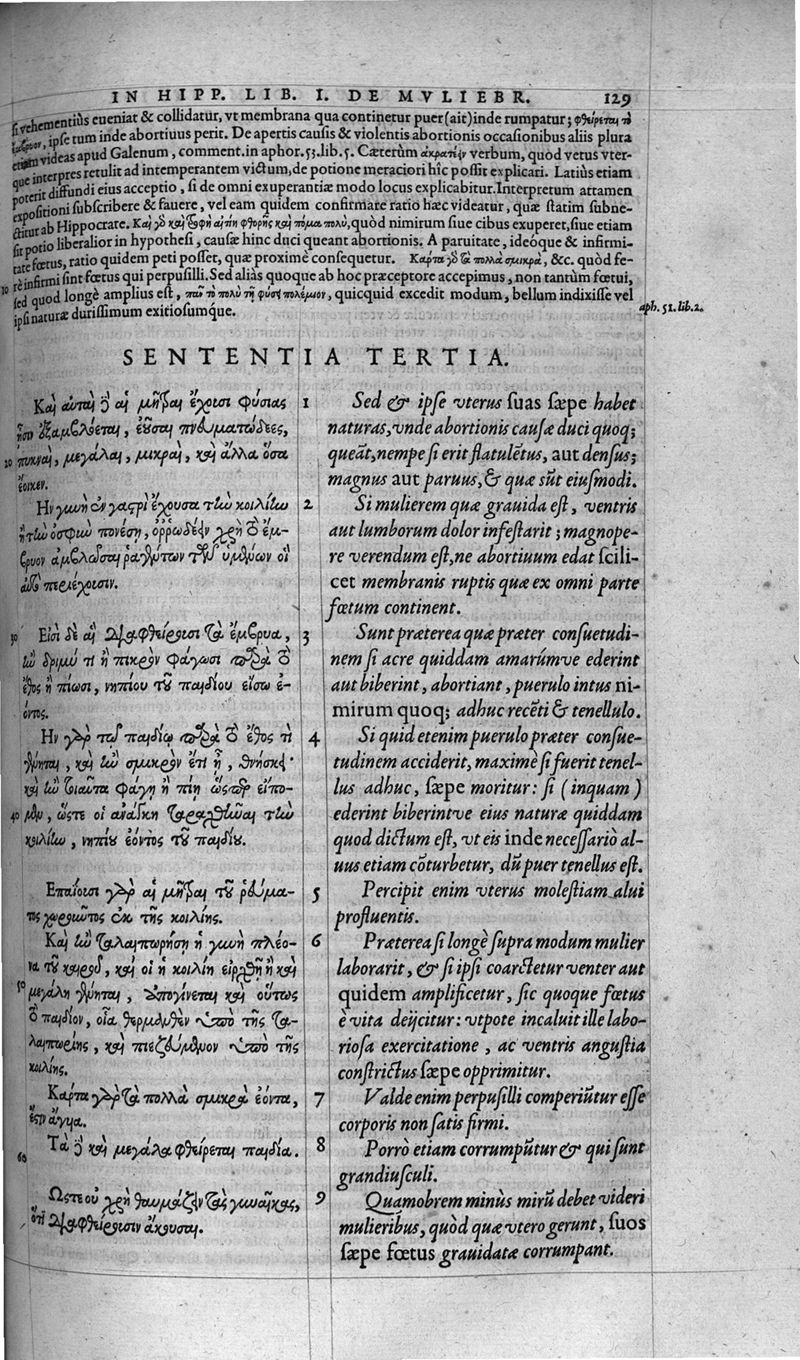 IN HIPP. LIB. I. DE MVLIEBR. 129
si vehementiùs eueniat & collidatur, vt membrana qua continetur puer (ait) inde rumpatur; φθείρεται τὸ
ἔμβρυον, ipse tum inde abortiuus perit. De apertis causis & violentis abortionis occasionibus aliis plura
etiam videas apud Galenum, comment. in aphor. 53. lib. 5. Cæterùm verbum, quòd vetus vter-
que interpres retulit ad intemperantem victum, de potione meraciori hîc possit explicari. Latiùs etiam
poterit diffundi eius acceptio, si de omni exuperantiæ modo locus explicabitur. Interpretum attamen
expositioni subscribere & fauere, vel eam quidem confirmare ratio hæc videatur, quæ statim subne-
ctitur ab Hippocrate. quòd nimirum siue cibus exuperet, siue etiam
sit potio liberalior in hypothesi, causæ hinc duci queant abortionis. A paruitate, ideóque & infirmi-
tate fœtus, ratio quidem peti posset, quæ proximè consequetur. Κάρτα γὸ τὰ πολλὰ σμικρὰ, &c. quòd fe-
10 rè infirmi sint fœtus qui perpusilli. Sed aliàs quoque ab hoc præceptore accepimus, non tantùm fœtui,
sed quod longè amplius est, πᾶν τὸ πολὺ τῇ φύσει πολέμιον, quicquid excedit modum, bellum indixisse vel
ipsi naturæ durissimum exitiosumque. aph. 51. lib. 2.
SENTENTIA TERTIA.
Καὶ αὐταὶ δ αἱ μῆτραι ἔχουσι φύσιας
ᾗσιν ἐξαμβλοῦται, ἐοῦσαι πνευματώδεες,
20 πυκναὶ, μεγάλαι, μικραὶ, καὶ ἄλλα ὅσα
ἔοικεν.
Ην γυνὴ ἐν γαστρὶ ἔχουσα τὴν κοιλίην
ἢ τὴν ὀσφὺν πονέσῃ, ὀῤῥωδεῖν χρὴ τὸ ἔμ-
βρυον ἀμβλῶσαι ῥαγέντων τῶν ὑμένων οἳ
αὐτὸ περιέχουσιν.
30 Εἰσὶ δὲ αἳ διαφθείρουσι τὰ ἔμβρυα,
ἢν δριμύ τι ἢ πικρὸν φάγωσι παρὰ τὸ
ἔθος ἢ πίωσι, νηπίου τοῦ παιδίου εἴσω ἐ-
όντος.
Ην γὰρ τῷ παιδίῳ παρὰ τὸ ἔθος τι
γένηται, καὶ ἢν σμικρὸν ἔτι ᾖ, θνήσκει·
καὶ ἢν τοιαῦτα φάγῃ ἢ πίῃ ὥσπερ εἶπο-
40 μεν, ὥστε οἱ ἀνάγκη ταραχθῆναι τὴν
κοιλίην, νηπίου ἐόντος τοῦ παιδίου.
Επαΐουσι γὰρ αἱ μῆτραι τοῦ ῥεύμα-
τος χωρεῦντος ἐκ τῆς κοιλίης.
Καὶ ἢν ταλαιπωρήσῃ ἡ γυνὴ πλέο-
να τοῦ καιροῦ, καὶ οἱ ἡ κοιλίη εἰρχθῇ ἢ καὶ
50 μεγάλη γένηται, ἀπογίνεται καὶ οὕτως
τὸ παιδίον, οἷα θερμανθὲν ὑπὸ τῆς τα-
λαιπωρίης, καὶ πιεζεύμενον ὑπὸ τῆς
κοιλίης.
Κάρτα γὰρ τὰ πολλὰ σμικρὰ ἐόντα,
60 Τὰ δ καὶ μεγάλα φθείρεται παιδία.
Ωστε οὐ χρὴ θωμάζειν τὰς γυναῖκας,
ὅτι διαφθείρουσιν ἀκουσαι.
1 Sed & ipse vterus suas sæpe habet
naturas, vnde abortionis causæ duci quoq;
queāt, nempe si erit flatulētus, aut densus;
magnus aut paruus, & quæ sūt eiusmodi.
2 Si mulierem quæ grauida est, ventris
aut lumborum dolor infestarit; magnope-
re verendum est, ne abortiuum edat scili-
cet membranis ruptis quæ ex omni parte
fœtum continent.
3 Sunt præterea quæ præter consuetudi-
nem si acre quiddam amarúmve ederint
aut biberint, abortiant, puerulo intus ni-
mirum quoq; adhuc recēti & tenellulo.
4 Si quid etenim puerulo præter consue-
tudinem acciderit, maximè si fuerit tenel-
lus adhuc, sæpe moritur: si (inquam)
ederint biberintve eius naturæ quiddam
quod dictum est, vt eis inde necessariò al-
uus etiam cōturbetur, dū puer tenellus est.
5 Percipit enim vterus molestiam alui
profluentis.
6 Præterea si longè supra modum mulier
laborarit, & si ipsi coarctetur venter aut
quidem amplificetur, sic quoque fœtus
è vita deijcitur: vtpote incaluit ille labo-
riosa exercitatione, ac ventris angustia
constrictus sæpe opprimitur.
7 Valde enim perpusilli comperiūtur esse
corporis non satis firmi.
8 Porrò etiam corrumpūtur & qui sunt
grandiusculi.
9 Quamobrem minùs mirū debet videri
mulieribus, quòd quæ vtero gerunt, suos
sæpe fœtus grauidatæ corrumpant.